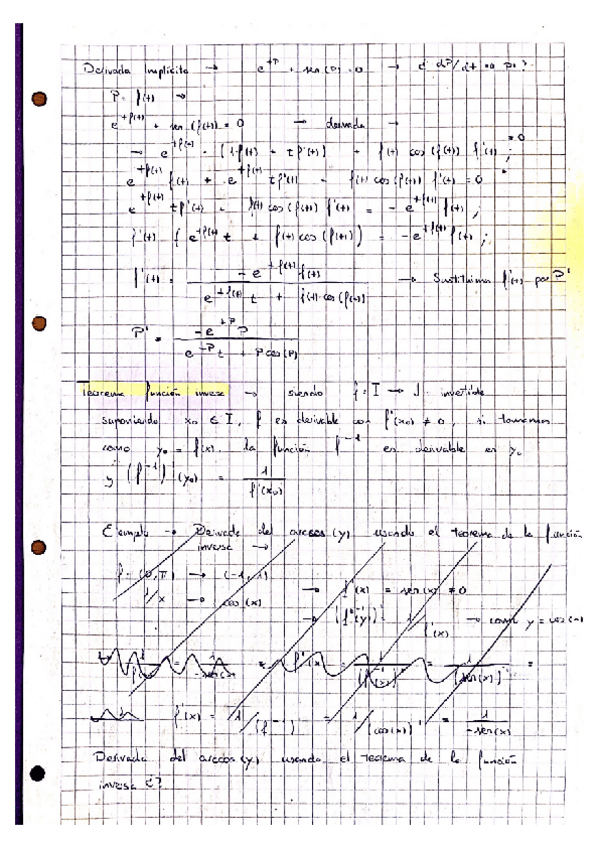 Derivada Implícita → e^{tP} + sen(P) = 0 → ¿ dP/dt
P = f(t) →
e^{t f(t)} + sen(f(t)) = 0 → derivada →
→ e^{t f(t)} · [1·f(t) + t f'(t)] + f(t) cos(f(t)) f'(t) = 0 ;
e^{t f(t)} f(t) + e^{t f(t)} t f'(t) + f(t) cos(f(t)) f'(t) = 0
e^{t f(t)} t f'(t) + f(t) cos(f(t)) f'(t) = -e^{t f(t)} f(t) ;
f'(t) ( e^{t f(t)} t + f(t) cos(f(t)) ) = -e^{t f(t)} f(t) ;
f'(t) = -e^{t f(t)} f(t) / e^{t f(t)} t + f(t) cos(f(t)) → Sustituimos f'(t) por P'
P' = -e^{tP} P / e^{tP} t + P cos(P)
Teorema función inversa → siendo f: I → J invertible
suponiendo x₀ ∈ I, f es derivable con f'(x₀) ≠ 0, si tomamos
como y₀ = f(x). la función f^{-1} es derivable en y₀
y (f^{-1})'(y₀) = 1 / f'(x₀)
Ejemplo → Derivada del arccos(y) usando el teorema de la función
inversa →
f = (0, π) → (-1, 1) → f'(x) = sen(x) ≠ 0
x → cos(x) → (f^{-1}(y))' = 1 / f'(x) → como y = cos(x)
f'(x) = 1/(f^{-1})' = 1/(cos(x))' = 1 / -sen(x)
Derivada del arccos(y) usando el teorema de la función
inversa ¿?